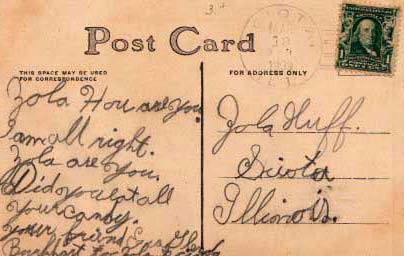 3.
SCIOTA
Post Card
THIS SPACE MAY BE USED
FOR CORRESPONDENCE
FOR ADDRESS ONLY
Zola How are you
I am all right.
Zola are you.
Did you eat all
your candy.
your friend
Zola Huff.
Sciota
Illinois.